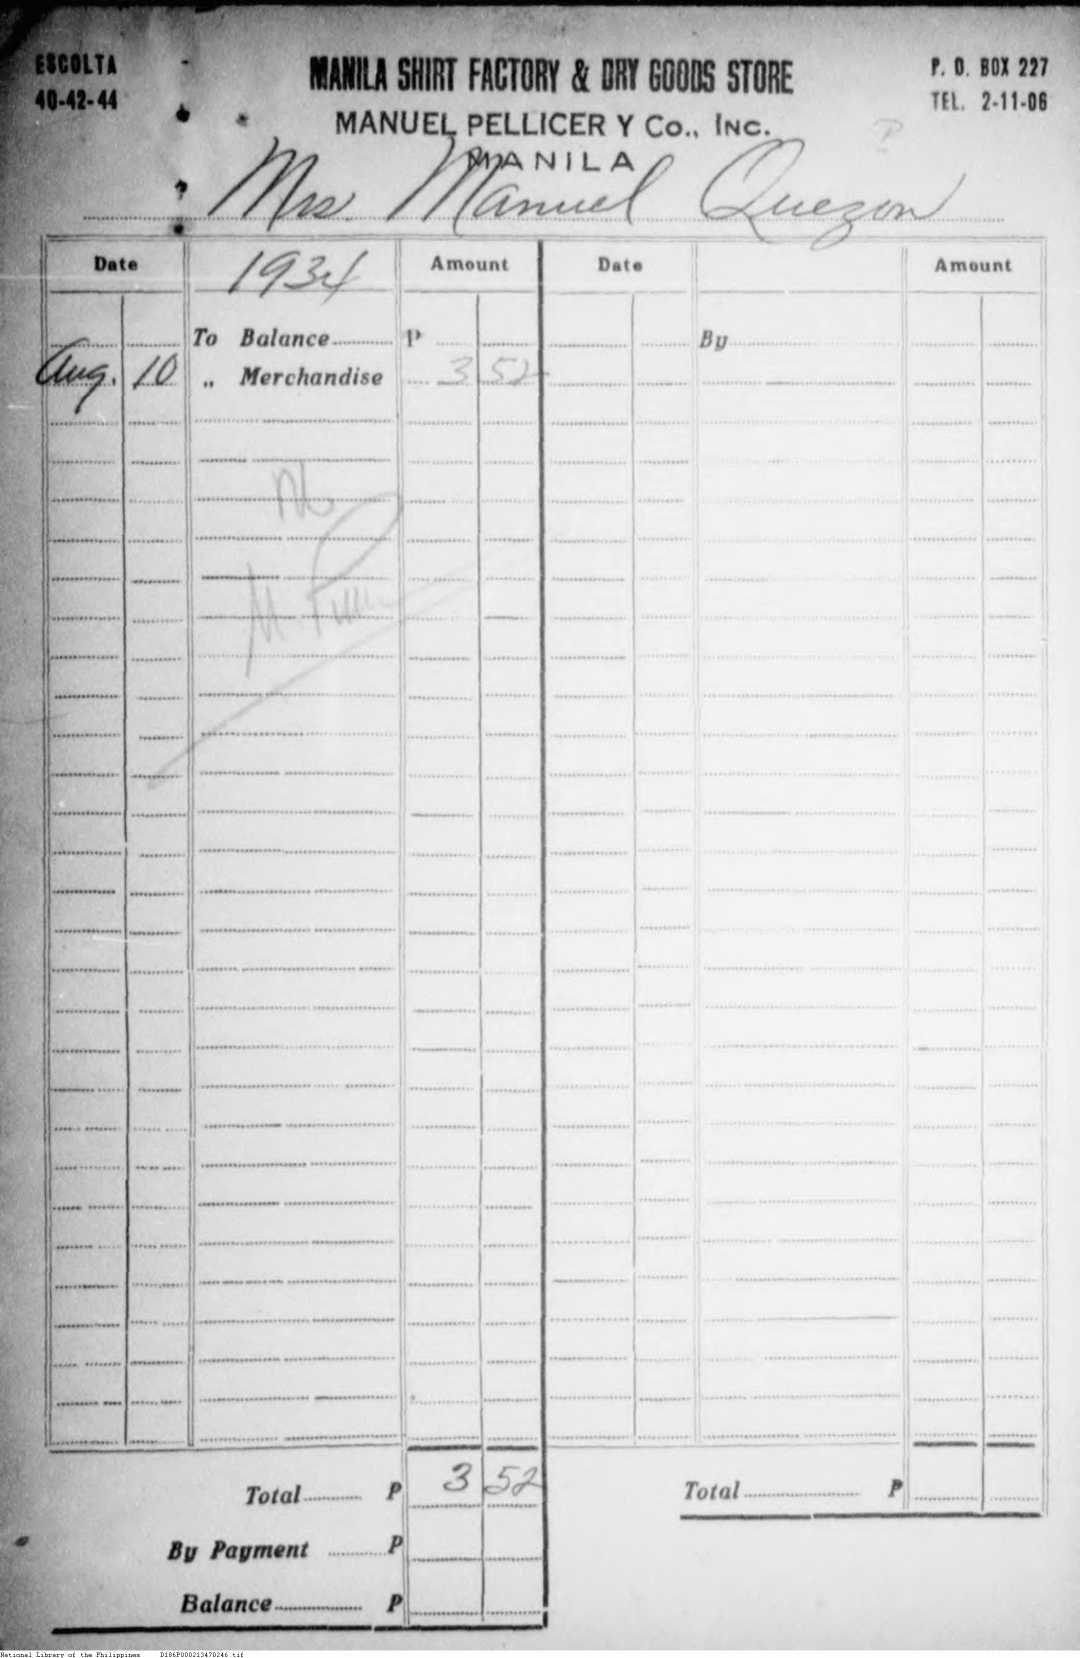 ESCOLTA
40-42-44
MANILA SHIRT FACTORY & DRY GOODS STORE
MANUEL PELLICER Y CO., INC.
MANILA
P. O. BOX 227
TEL. 2-11-06
Mrs. Manuel Quezon
Date 1934 Amount Date Amount
To Balance P By
Aug. 10 „ Merchandise 3 52
Total P 3 52 Total P
By Payment P
Balance P
National Library of the Philippines D186P000213470246.tif